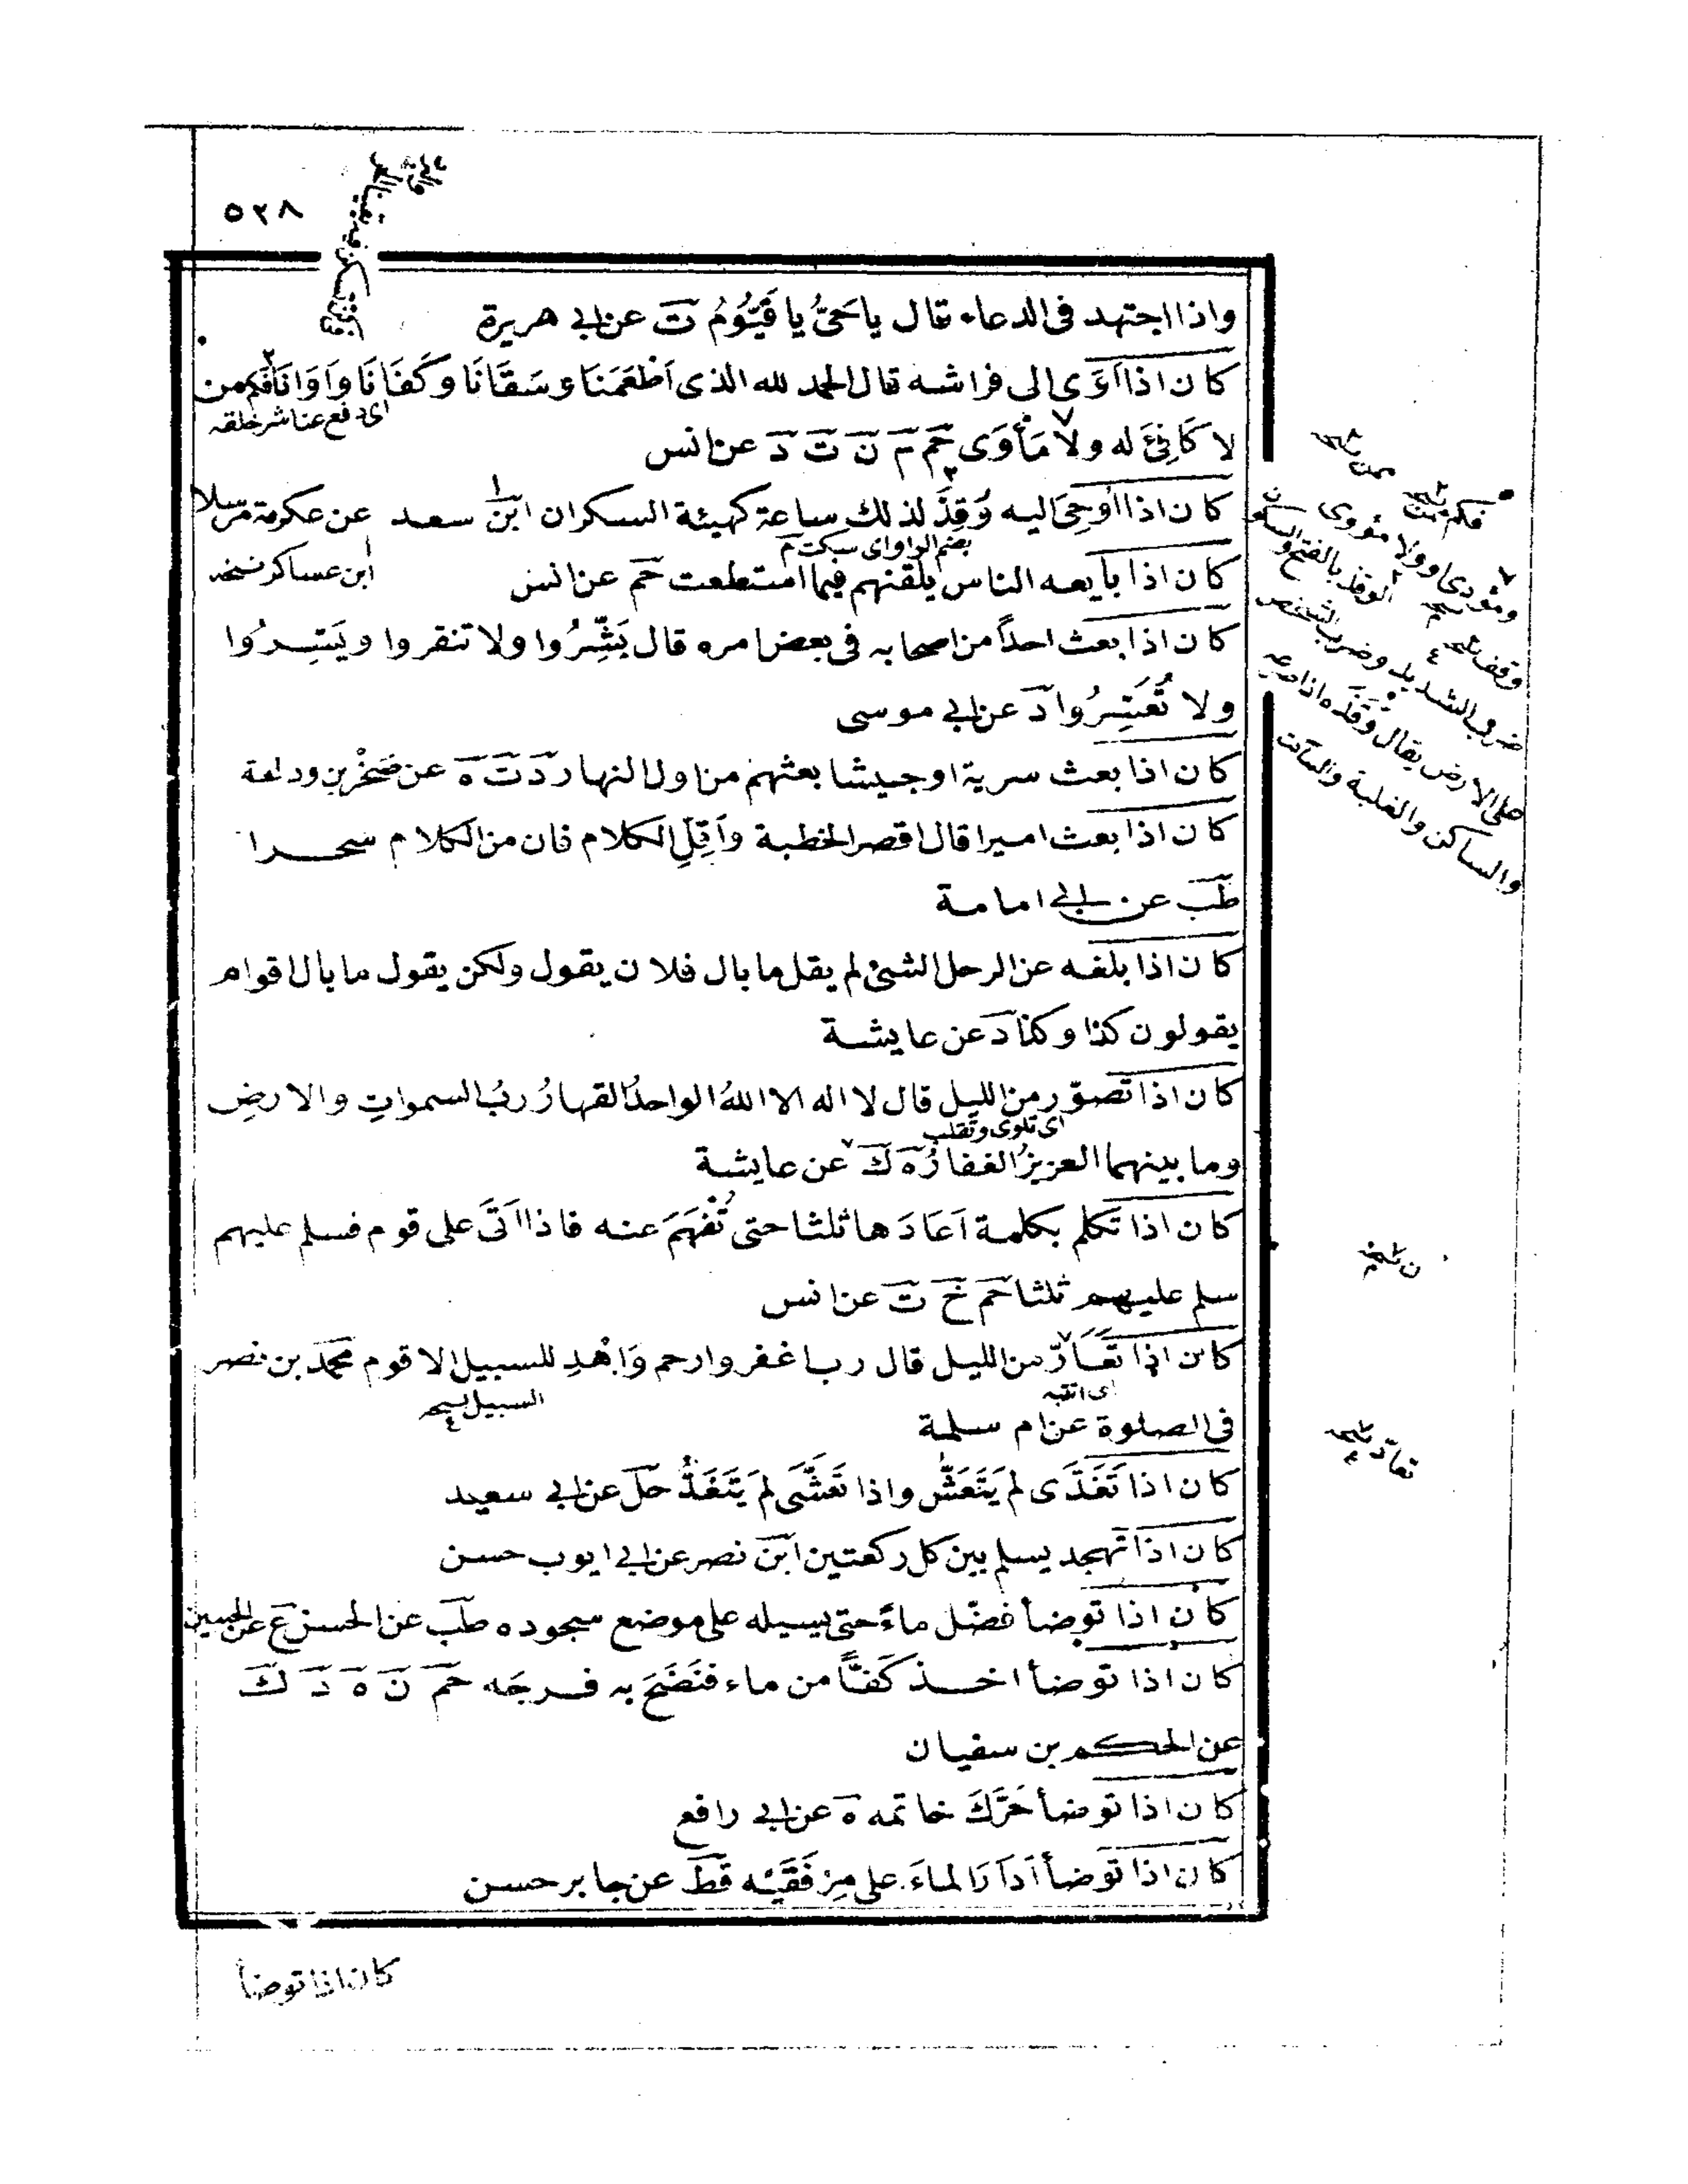 ٥٢٨
واذا اجتهد فى الدعاء قال يا حَىُّ يا قَيُّومُ تَ عن ابى هريرة
كان اذا آوَى الى فراشه قال الحمد لله الذى اَطْعَمَنَا وَسَقَانَا وكَفَانَا وآوَانَا فَكم من
اى دفع عنا شر خلقه
لا كَافِئَ له ولا مَأْوَى حَم مَ نَ تَ دَ عن انس
كان اذا اُوحِىَ اليه وُقِذَ لذلك ساعة كهيئة السكران ابن سعد عن عكرمة مرسلا
بضم الواو اى سكت م
ابن عساكر نسخه
كان اذا بايعه الناس يلقنهم فيما استطعت حَم عن انس
كان اذا بعث احداً من اصحابه فى بعض امره قال بَشِّرُوا ولا تنفروا ويَسِّرُوا
ولا تُعَسِّرُوا دَ عن ابى موسى
كان اذا بعث سرية او جيشا بعثهم من اول النهار دَ تَ ه عن صَخْر بن وداعة
كان اذا بعث اميرا قال اقصر الخطبة وَاَقِلِّ الكلام فان من الكلام سحرا
طَب عن ابى امامة
كان اذا بلغه عن الرجل الشئ لم يقل ما بال فلان يقول ولكن يقول ما بال اقوام
يقولون كذا وكذا دَ عن عايشة
كان اذا تصوّر من الليل قال لا اله الا اللهُ الواحدُ القهارُ ربُّ السمواتِ والارضِ
اى تلوى وتقلب
وما بينهما العزيزُ الغفارُ ه كَ عن عايشة
كان اذا تكلم بكلمة اَعَادَها ثلثا حتى تُفْهَمَ عنه فاذا اَتَى على قوم فسلم عليهم
سلم عليهم ثلثا حَم خَ تَ عن انس
كان اذا تَعَارَّ من الليل قال رب اغفر وارحم وَاهْدِ للسبيل الاقوم محمد بن نصر
اى انتبه
السبيل نسخه
فى الصلوة عن ام سلمة
كان اذا تَغَدَّى لم يَتَعَشَّ واذا تَعَشَّى لم يَتَغَدَّ حَل عن ابى سعيد
كان اذا تهجد يسلم بين كل ركعتين ابن نصر عن ابى ايوب حسن
كان اذا توضأ فضّل ماءً حتى يسيله على موضع سجوده طَب عن الحسن ع عن الحسين
كان اذا توضأ اخذ كَفًّا من ماء فنَضَحَ به فرجَه حَم نَ ه دَ كَ
عن الحكم بن سفيان
كان اذا توضأ حَرَّكَ خاتمه ه عن ابى رافع
كان اذا توضأ اَدَارَ الماءَ على مِرْفَقَيْه قَط عن جابر حسن
كان اذا توضأ
فكم ممن
ومؤدى او ولا مؤوى
وقف نسخه الوقذ بالفتح والسكون
ضرب الشديد وضرب الشخص
على الارض يقال وَقَذَه اذا صرعه
والساكن والغلبة والساكت